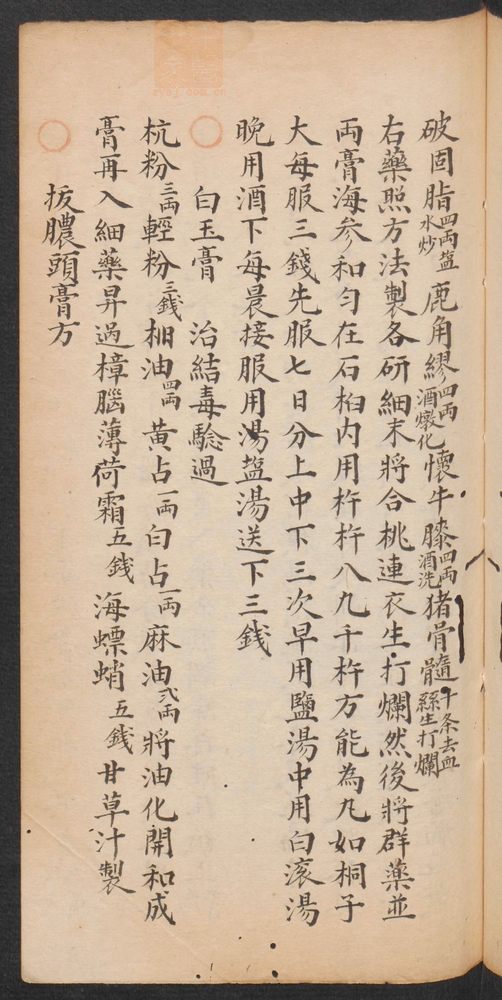 破固脂四両盐水炒鹿角繆四両酒燉化懷牛膝四両酒洗猪骨髓十条去血絲生打爛
右藥照方法製各研細末將合桃連衣生打爛然後將群藥並
両膏海参和勻在石柏内用杵杵八九千杵方能為凡如桐子
大每服三錢先服七日分上中下三次早用鹽湯中用白滚湯
晚用酒下每晨接服用湯盐湯送下三錢
白玉膏 治結毒驗過
杭粉三両輕粉三錢柏油四両黄占一両白占一両麻油弍両將油化開和成
膏再入細藥昇過樟腦薄荷霜五錢海螵蛸五錢甘草汁製
拔膿頭膏方